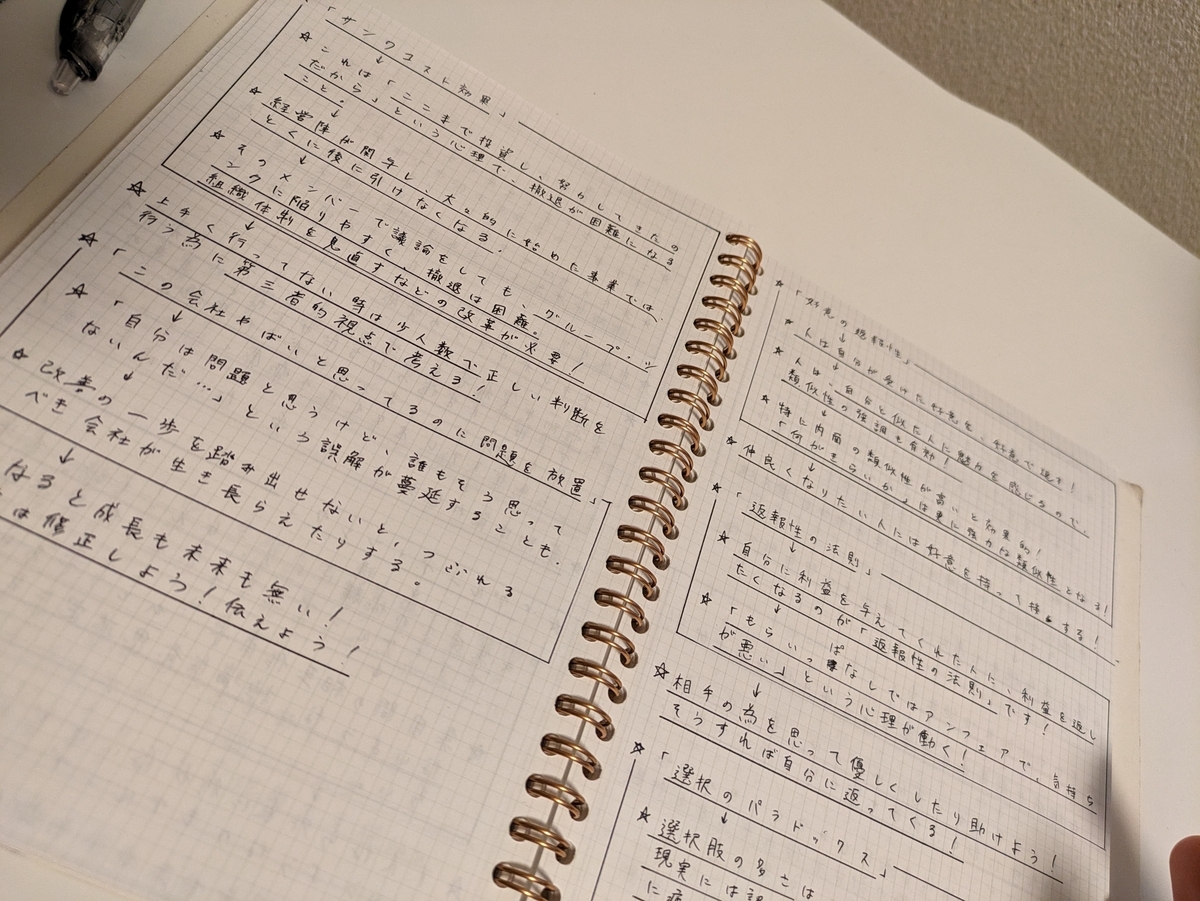 「サンクコスト効果」
↓
☆これは「ここまで投資し、努力してきたの
だから」という心理で、撤退が困難になる
こと。
↓
☆経営陣が関与し、大々的に始めた事業では、
とくに後に引けなくなる。
↓
☆そのメンバーで議論をしても、グループ・シ
ンクに陥りやすく、撤退は困難。
組織体制を見直すなどの改革が必要!
↓
☆上手く行ってない時は少人数で正しい判断を
行う為に第三者的視点で考えろ!
☆「この会社やばいと思ってるのに問題を放置」
↓
☆「自分は問題と思うけど、誰もそう思って
ないんだ…」という誤解が蔓延することも.
↓
☆改善の一歩を踏み出せないと、つぶれる
べき会社が生き長らえたりする。
↓
なると成長も未来も無い!
は修正しよう!伝えよう!
☆「好意の返報性」
↓
☆人は自分が受けた好意を、好意で返す!
↓
☆人は、自分と似た人に魅力を感じるので、
類似性の強調も有効!
↓
☆特に内面の類似性が高いと効果的!
「何がきらいか」は更に強力な類似性となる!
↓
☆仲良くなりたい人には好意を持って接する!
☆「返報性の法則」
↓
☆自分に利益を与えてくれた人に、利益を返し
たくなるのが「返報性の法則」です!
↓
☆「もらいっぱなしではアンフェアで、気持ち
が悪い」という心理が働く!
↓
☆相手の為を思って優しくしたり助けよう!
そうすれば自分に返ってくる!
☆「選択のパラドックス」
↓
☆選択肢の多さは
現実には
に